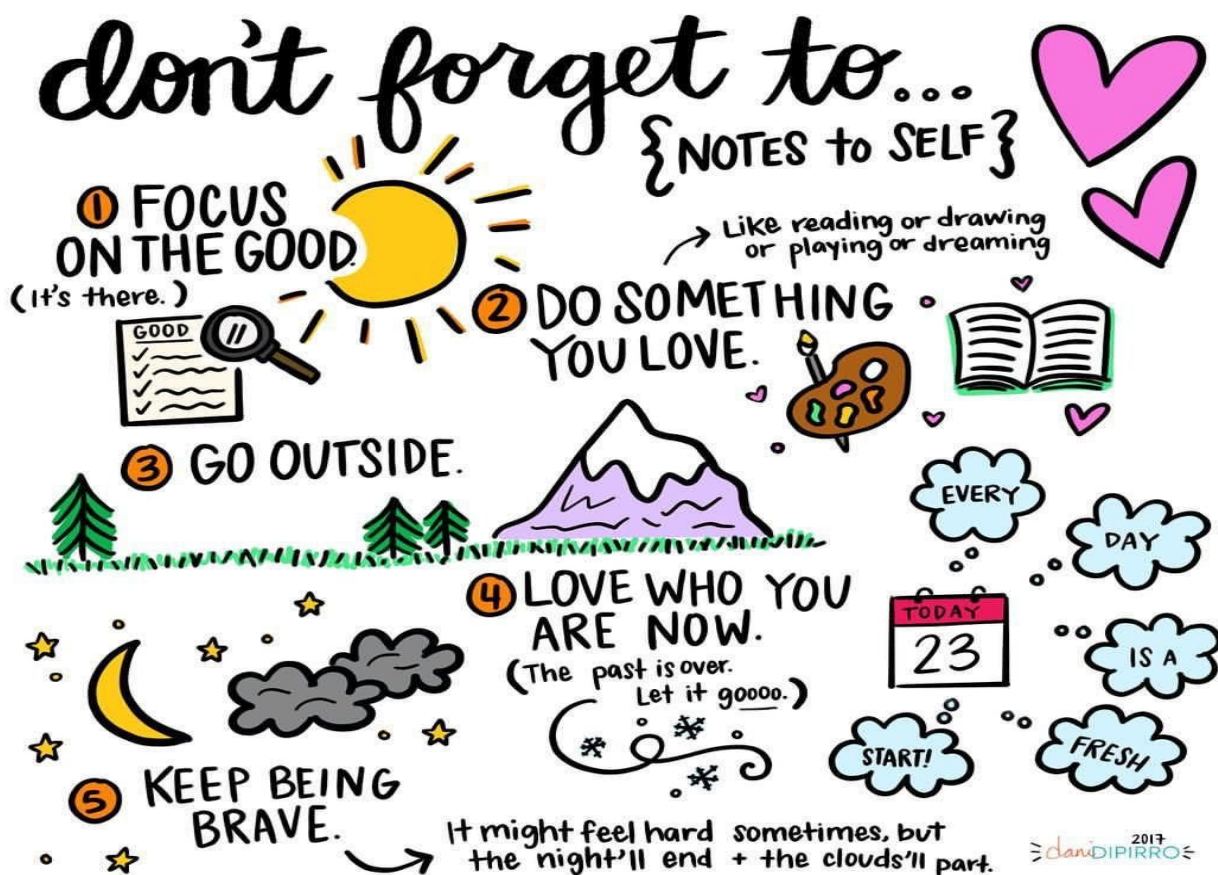 don't forget to...
{NOTES to SELF}
1 FOCUS
ON THE GOOD.
(It's there.)
GOOD
2 DO SOMETHING
YOU LOVE.
Like reading or drawing
or playing or dreaming
3 GO OUTSIDE.
4 LOVE WHO YOU
ARE NOW.
(The past is over.
Let it goooo.)
EVERY
DAY
IS A
FRESH
START!
TODAY
23
5 KEEP BEING
BRAVE.
It might feel hard sometimes, but
the night'll end + the clouds'll part.
2017
daniDIPIRRO